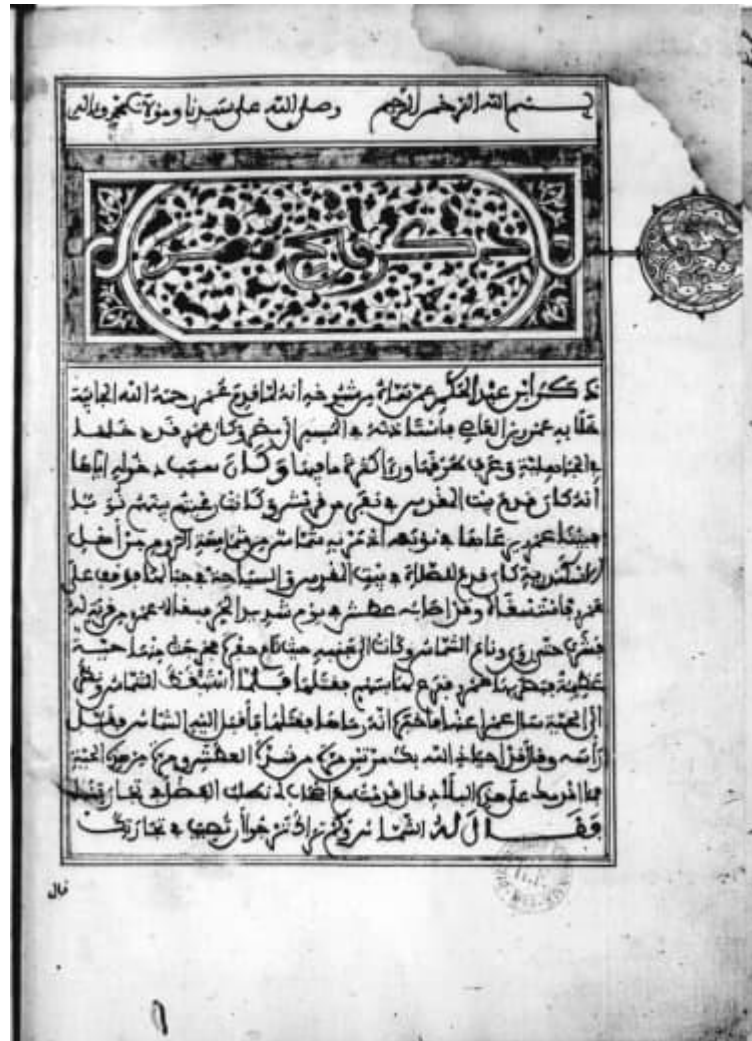 بسم الله الرحمن الرحيم وصلى الله على سيدنا ومولانا محمد واله
ذكر فتح مصر
ذكر ابن عبد الحكم عمن سماه من شيوخه انه لما قدم عمر رحمه الله الجابية
خلا به عمرو بن العاصي فاستاذنه في المسير الى مصر وكان عمرو قد دخلها
في الجاهلية وعرف طرقها وراى كثرة ما فيها وكان سبب دخوله اياها
انه كان قدم بيت المقدس في نفر من قريش وكانت بينهم
فبينا عمرو يرعاها في نوبته اذ مر به شماس من شمامسة الروم من اهل
الاسكندرية كان قدم للصلاة في بيت المقدس والسياحة في جبالها فوقف على
عمرو فاستسقاه وقد اصابه عطش في يوم شديد الحر فسقاه عمرو من قربة له
فشرب حتى روي ونام الشماس وكانت الى جنبه حيث نام حفرة فخرجت منها حية
عظيمة فبصر بها عمرو فنزع لها بسهم فقتلها فلما استيقظ الشماس ونظر
الى الحية سال عمرا عنها فاخبره انه رماها فقتلها فاقبل اليه الشماس وقبل
راسه وقال قد احياني الله بك مرتين مرة من شدة العطش ومرة من هذه الحية
فما اقدمك على هذه البلاد قال قدمت مع اصحاب لي نطلب الفضل في تجارتنا
فقال له الشماس وكم تراك ترجو ان تصيب في تجارتك
قال